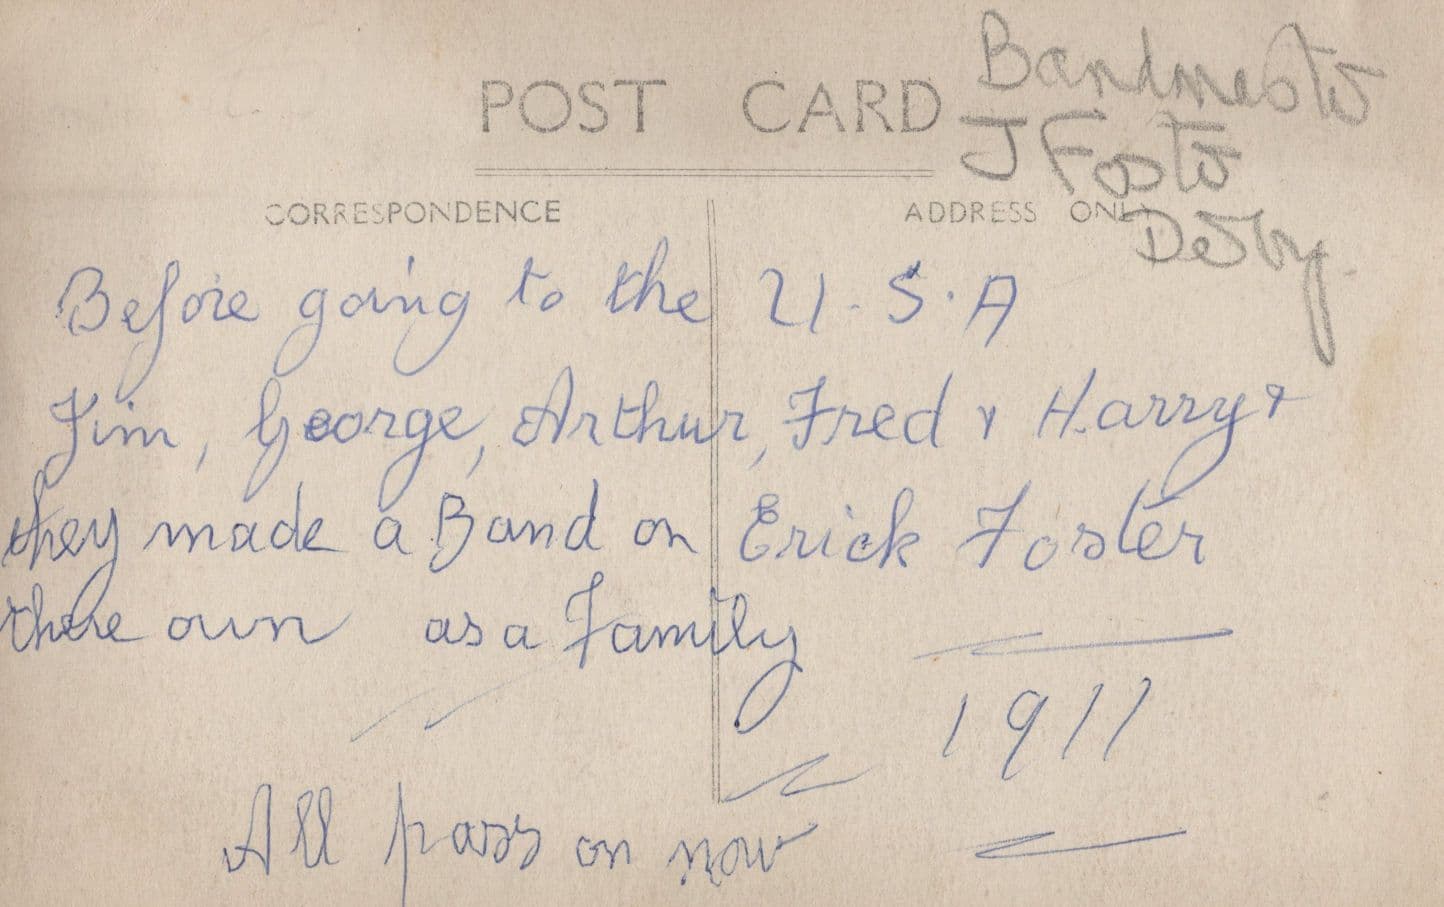 POST CARD
Bandmaster
J Foster
Derby
CORRESPONDENCE
ADDRESS ONLY
Before going to the U.S.A
Jim, George, Arthur, Fred & Harry &
they made a Band on Erick Foster
there own as a Family
1911
All pass on now